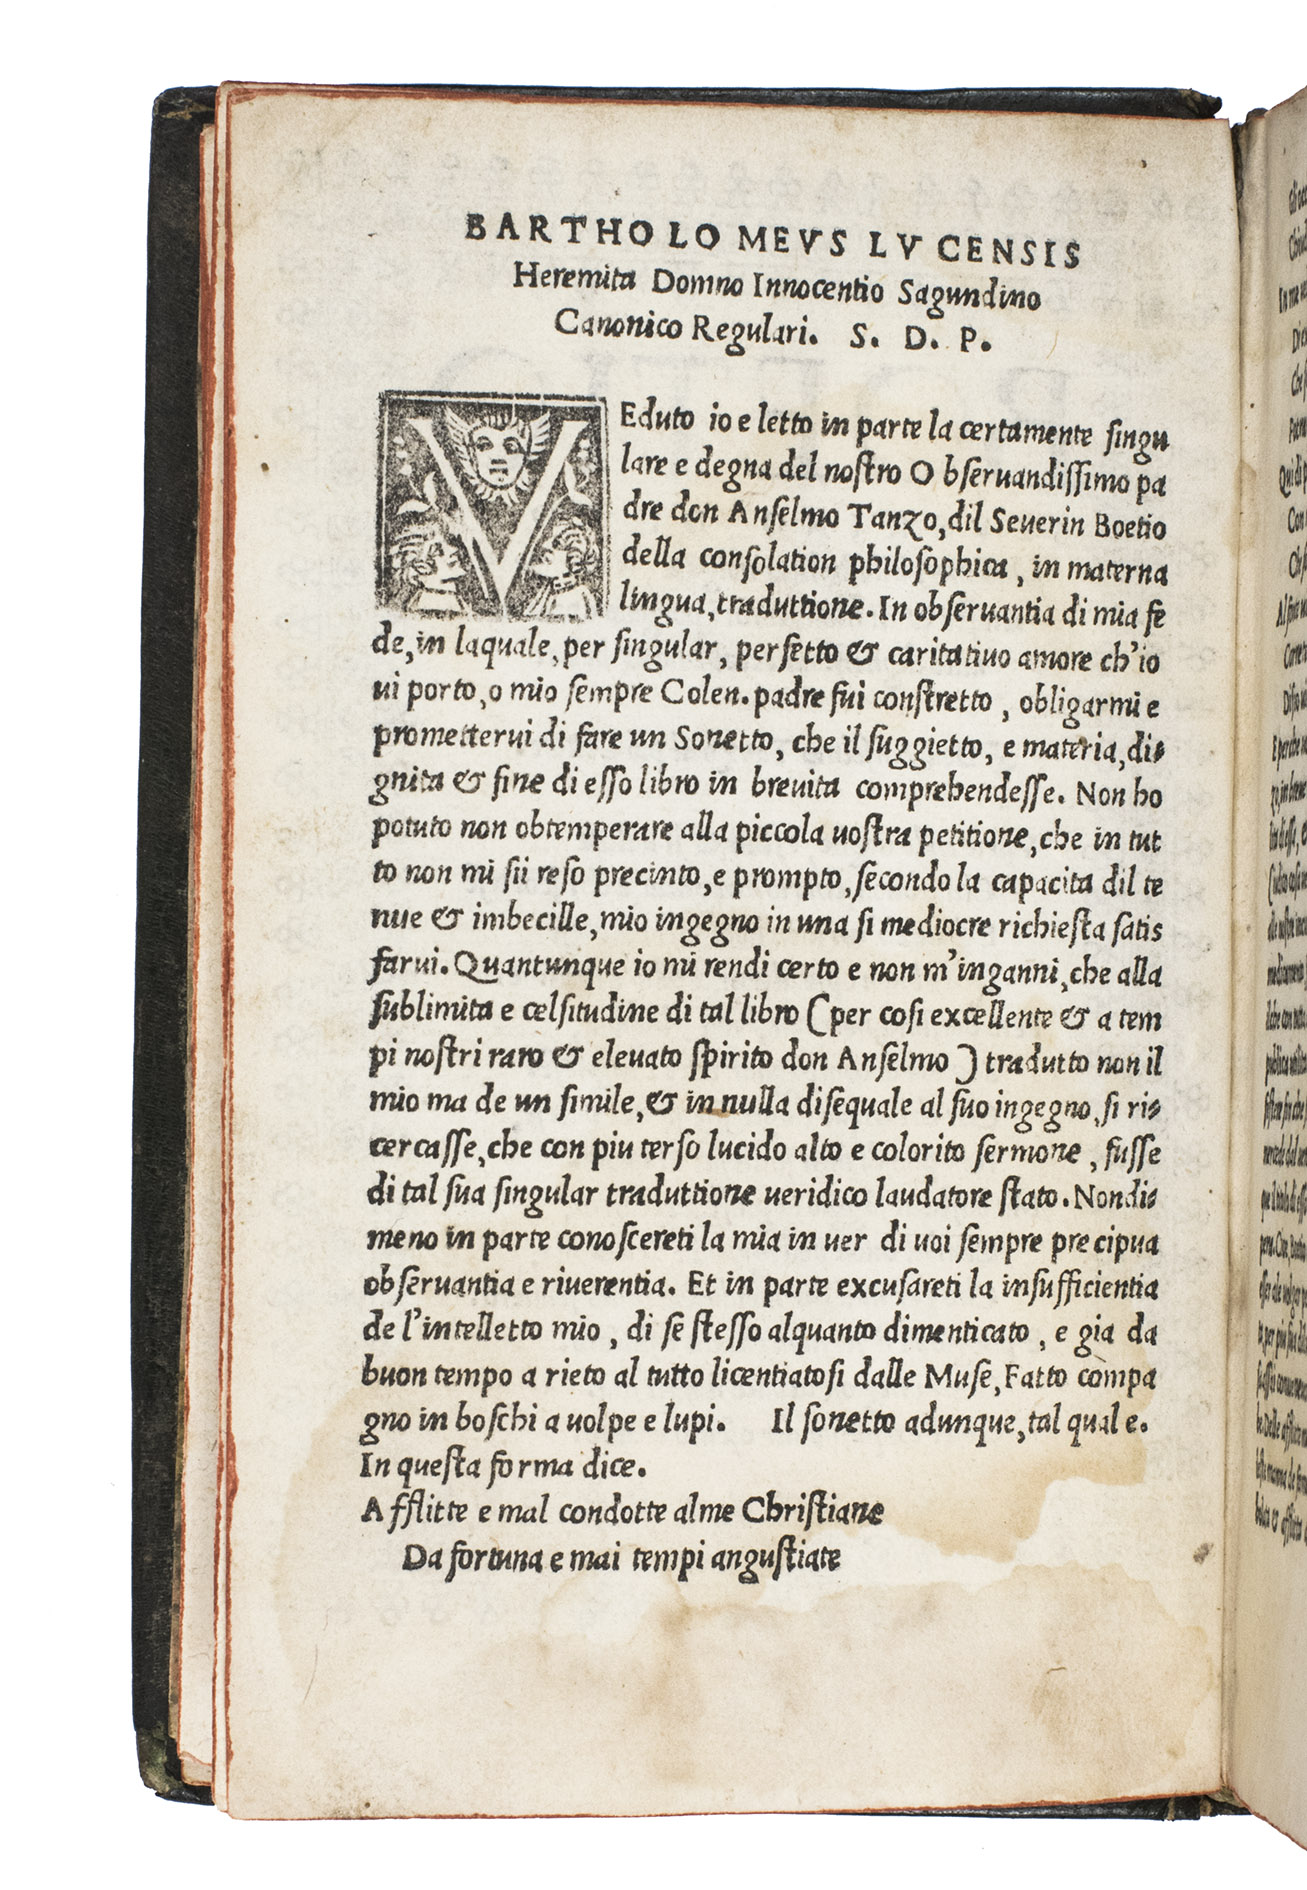 BARTHOLOMEVS LVCENSIS
Heremita Domno Innocentio Sagundino
Canonico Regulari. S. D. P.
VEduto io e letto in parte la certamente singu
lare e degna del nostro Obseruandissimo pa
dre don Anselmo Tanzo, dil Seuerin Boetio
della consolation philosophica, in materna
lingua, traduttione. In obseruantia di mia fe
de, in laquale, per singular, perfetto & caritatiuo amore ch'io
ui porto, o mio sempre Colen. padre fui constretto, obligarmi e
prometterui di fare un Sonetto, che il suggietto, e materia, di-
gnita & fine di esso libro in breuita comprehendesse. Non ho
potuto non obtemperare alla piccola uostra petitione, che in tut
to non mi sii reso precinto, e prompto, secondo la capacita dil te
nue & imbecille, mio ingegno in una si mediocre richiesta satis
farui. Quantunque io mi rendi certo e non m'inganni, che alla
sublimita e celsitudine di tal libro (per cosi excellente & a tem
pi nostri raro & eleuato spirito don Anselmo) tradutto non il
mio ma de un simile, & in nulla disequale al suo ingegno, si ri-
cercasse, che con piu terso lucido alto e colorito sermone, fusse
di tal sua singular traduttione ueridico laudatore stato. Nondi-
meno in parte conoscereti la mia in uer di uoi sempre precipua
obseruantia e riuerentia. Et in parte excusareti la insufficientia
de l'intelletto mio, di se stesso alquanto dimenticato, e gia da
buon tempo a rieto al tutto licentiatosi dalle Muse, Fatto compa
gno in boschi a uolpe e lupi. Il sonetto adunque, tal qual e.
In questa forma dice.
Afflitte e mal condotte alme Christiane
Da fortuna e mai tempi angustiate